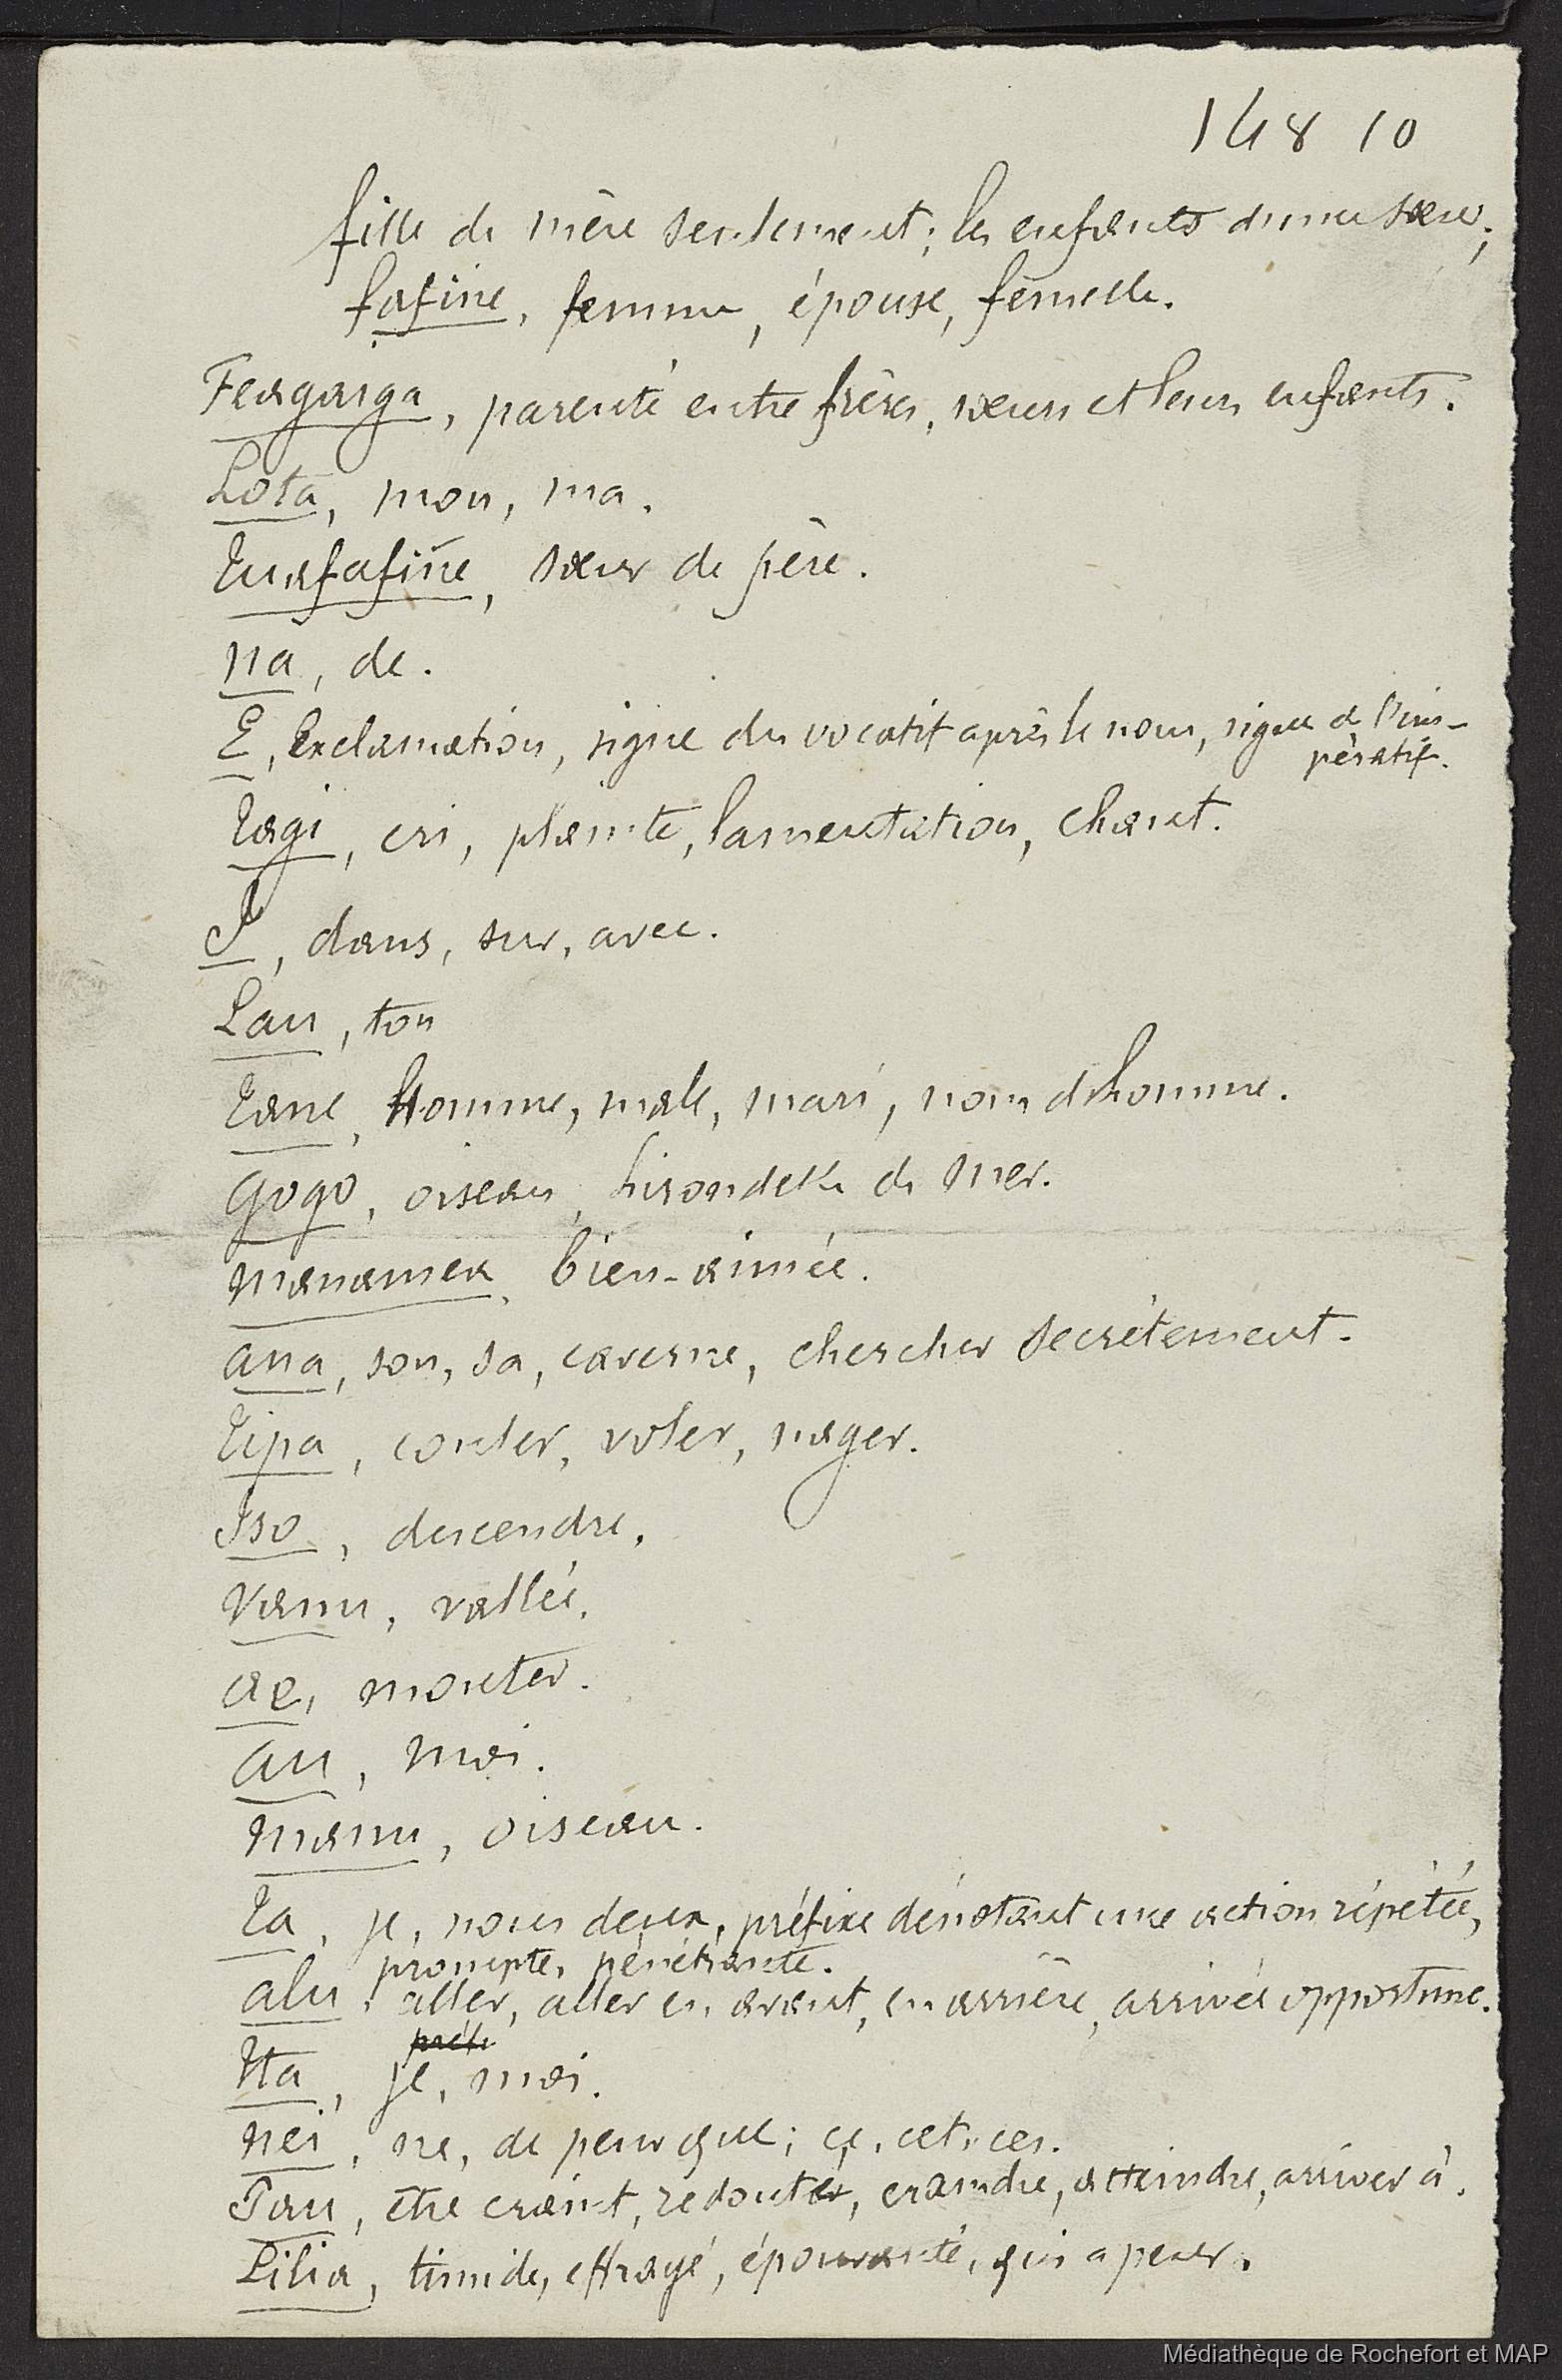 148 10
fille de mère seulement; les enfants d'une sœur;
fafine, femme, épouse, femelle.
Feagaiga, parenté entre frères, sœurs et leurs enfants.
Lota, mon, ma.
Tuafafine, sœur de père.
na, de.
E, Exclamation, signe du vocatif après le nom, signe de l'im-
pératif.
Tagi, cri, plainte, lamentation, chant.
I, dans, sur, avec.
Lau, ton
Tane, Homme, male, mari, nom d'homme.
Gogo, oiseau, hirondelle de mer.
manamea, bien-aimée.
ana, son, sa, caverne, chercher secrétement.
Tipa, couler, voler, nager.
Iso, descendre.
Vanu, vallée.
ae, monter.
au, moi.
manu, oiseau.
Ta, je, nous deux, préfixe dénotant une action répétée,
prompte, pénétrante.
alu, aller, aller en avant, en arrière, arrivée opportune.
Ita, je, moi.
nei, ne, de peur que; ce, cet, ces.
Tau, être craint, redouter, craindre, atteindre, arriver à.
Lilia, timide, effrayé, épouvanté, qui a peur.
Médiathèque de Rochefort et MAP